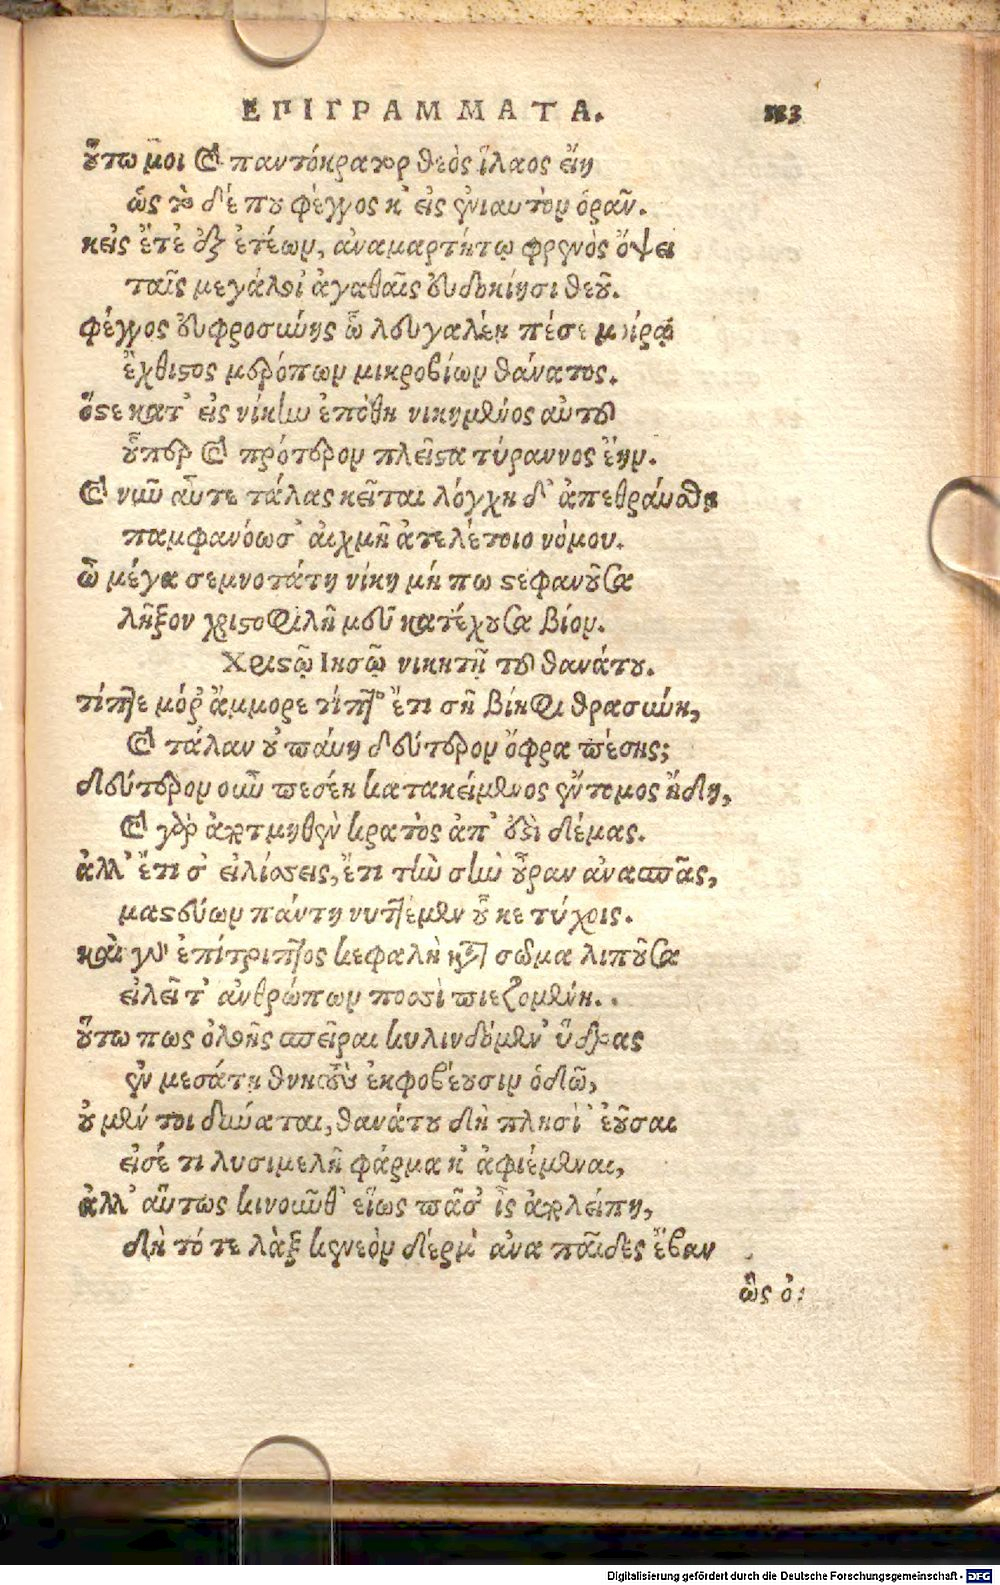 ΕΠΙΓΡΑΜΜΑΤΑ. 183
οὕτω μοι ὁ παντόκρατορ θεὸς ἵλαος εἴη
ὥς τὸ δέ που φέγγος κ' εἰς ἐνιαυτὸν ὁρᾶν.
κεἰς ἔτε' ἐξ ἐτέων, ἀναμαρτήτῳ φρενὸς ὄψει
ταῖς μεγάλαι ἀγαθαῖς εὐδοκίῃσι θεοῦ.
φέγγος εὐφροσύνης ὦ λευγαλέῃ πέσε μοίρᾳ
ἔχθιστος μερόπων μικροβίων θάνατος.
ὅστε κατ' εἰς νίκην ἐπόθη νικημένος αὐτοῦ
οὗπερ ὁ πρότερον πλεῖστα τύραννος ἔην.
ὁ νῦν αὖτε τάλας κεῖται λόγχη δ' ἀπεθραύσθη
παμφανόωσ' αἰχμὴ ἀτελέτοιο νόμου.
ὦ μέγα σεμνοτάτη νίκη μή πω στεφανοῦσα
λῆξον χριστοφιλῆ μεῦ κατέχουσα βίον.
Χριστῷ Ἰησῷ νικητῇ τοῦ θανάτου.
τίπτε μόρ' ἄμμορε τίπτ' ἔτι σῇ βίηφι θρασύνῃ,
ὁ τάλαν οὐ παύῃ δεύτερον ὄφρα πέσῃς;
δεύτερον οὖν πεσέῃ κατακείμενος ἔντομος ἤδη,
ὁ γὰρ ἀρτμηθὲν κρατὸς ἀπ' ἐστὶ δέμας.
ἀλλ' ἔτι σ' εἰλίσσεις, ἔτι τὴν σὴν οὖραν ἀνασπᾶς,
μαστεύων πάντη νυττέμεν οὗ κε τύχοις.
καὶ γὰρ ἐπίτριπτος κεφαλὴ κατὰ σῶμα λιποῦσα
εἰλεῖτ' ἀνθρώπων ποσσὶ πιεζομένη.
οὕτω πως ὀλοῆς σπεῖραι κυλινδόμεν' ὕδρας
ἐν μεσάτῃ θνητοὺς ἐκφοβέουσιν ὁδῷ,
οὐ μέν τοι δύναται, θανάτου δὴ πλησί' ἐοῦσαι
εἰσέ τι λυσιμελῆ φάρμακ' ἀφιέμεναι,
ἀλλ' αὔτως κινοῦνθ' εἵως πᾶσ' ἲς ἀπλείπῃ,
δὴ τό τε λὰξ κενεὸν δέρμ' ἀνα παῖδες ἔβαν
ὣς ὁ:
Digitalisierung gefördert durch die Deutsche Forschungsgemeinschaft - DFG